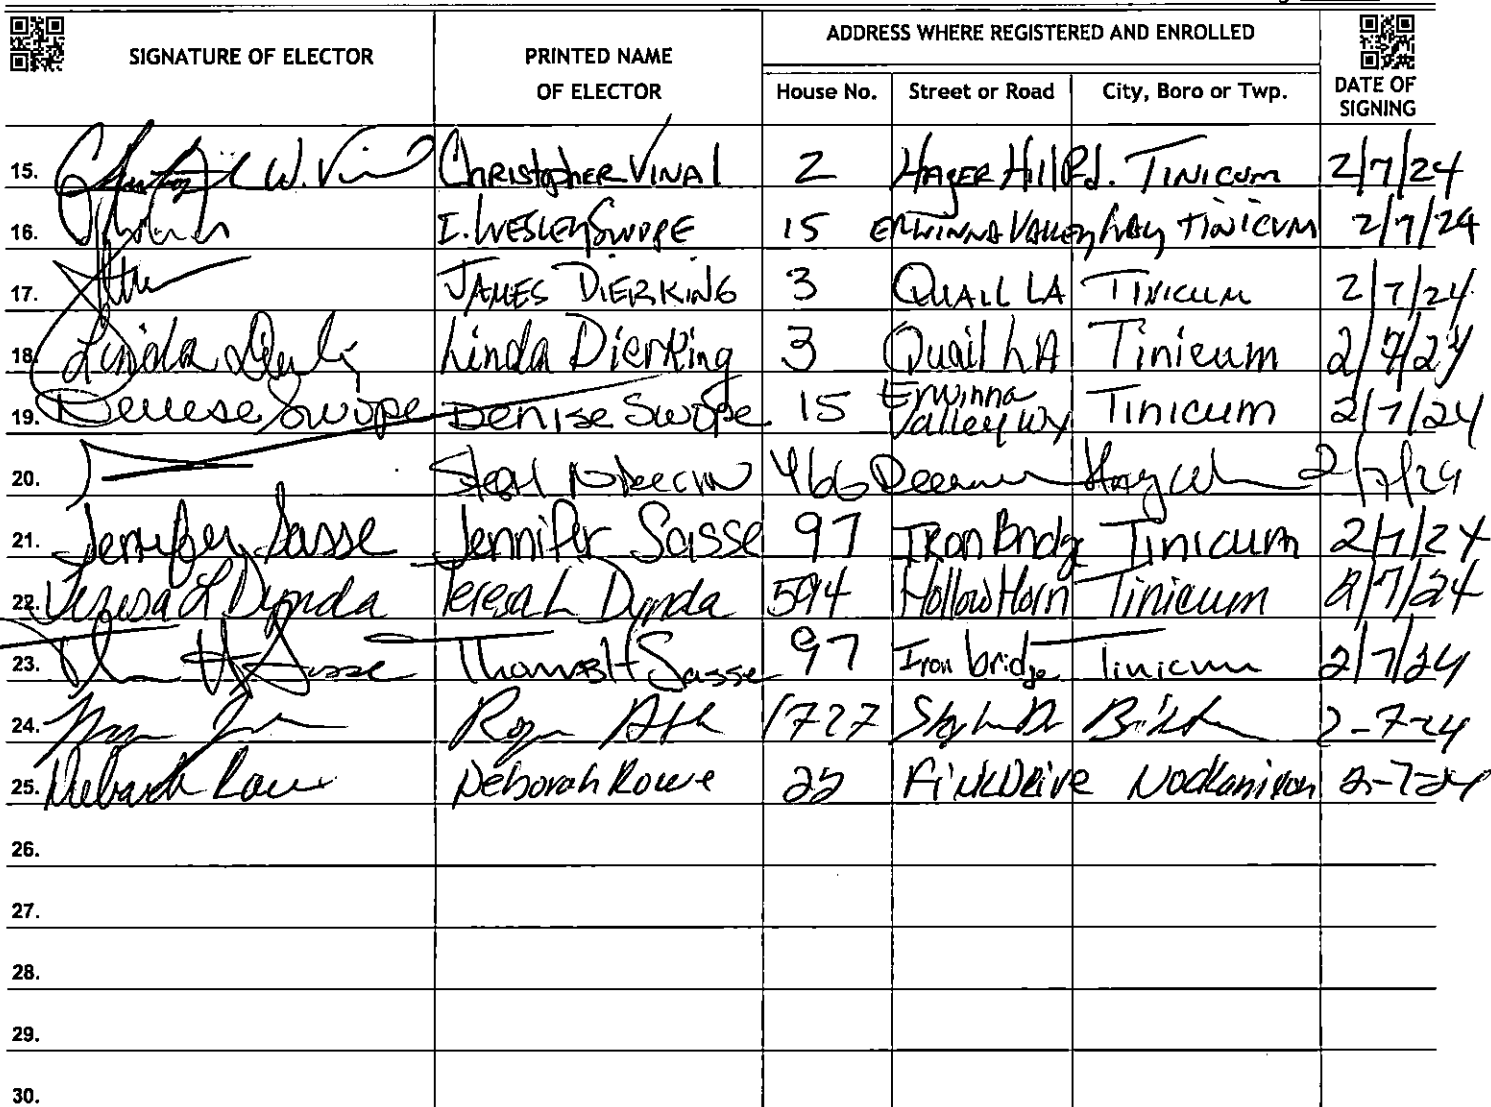 SIGNATURE OF ELECTOR
PRINTED NAME OF ELECTOR
ADDRESS WHERE REGISTERED AND ENROLLED
House No. Street or Road City, Boro or Twp.
DATE OF SIGNING
15. Christopher VINAl 2 HAGER Hill Rd. TINICUM 2/7/24
16. I. WESLEY SWOPE 15 ERWINNA VALLEY WAY TINICUM 2/7/24
17. JAMES DIERKING 3 QUAIL LA TINICUM 2/7/24
18. Linda Dierking 3 Quail LA Tinicum 2/7/24
19. Denise Swope Denise Swope 15 Erwinna Valley Wy Tinicum 2/7/24
20. 466 2/7/24
21. Jennifer Sasse Jennifer Sasse 97 Iron Bridg Tinicum 2/7/24
22. Teresa L Dynda Teresa L Dynda 594 Hollow Horn Tinicum 2/7/24
23. Thomas H Sasse 97 Iron bridge Tinicum 2/7/24
24. 1727 2-7-24
25. Deborah Rowe Deborah Rowe 22 Fink Drive Nockamixon 2-7-24
26.
27.
28.
29.
30.